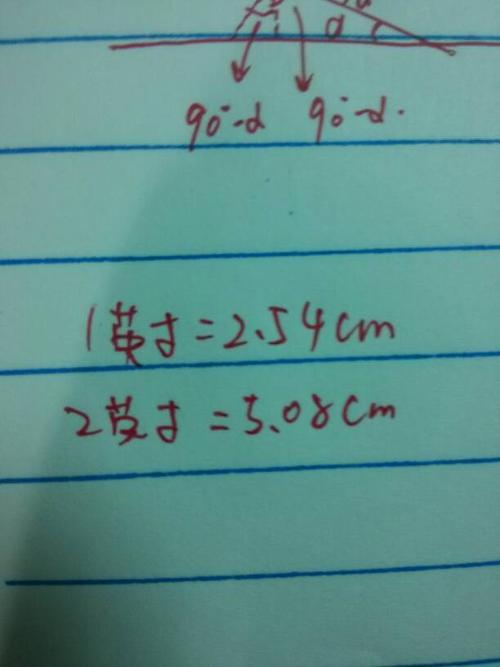 α
90°-α 90°-α.
1英寸=2.54cm
2英寸=5.08cm